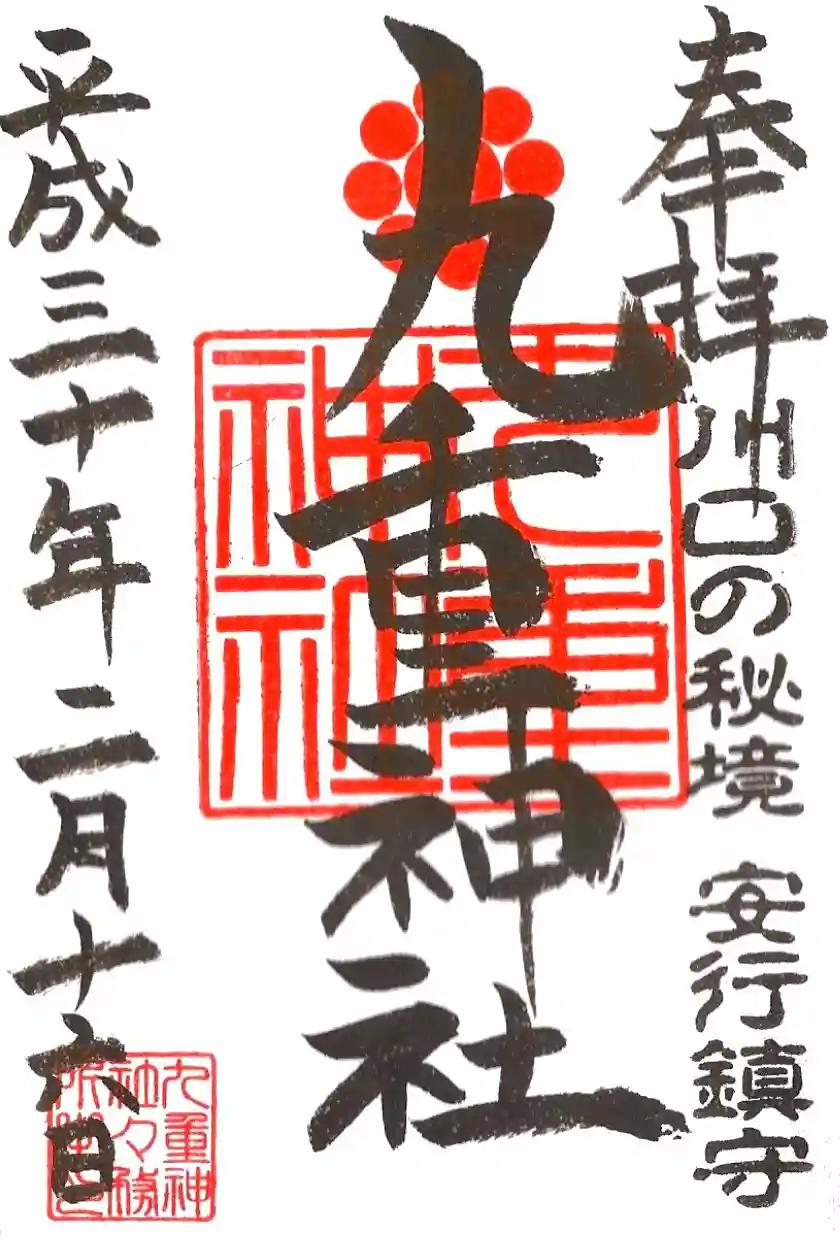 奉拝
川口の秘境 安行鎮守
九重神社
九重神社
平成三十年二月十六日
九重神
社々務
所之印